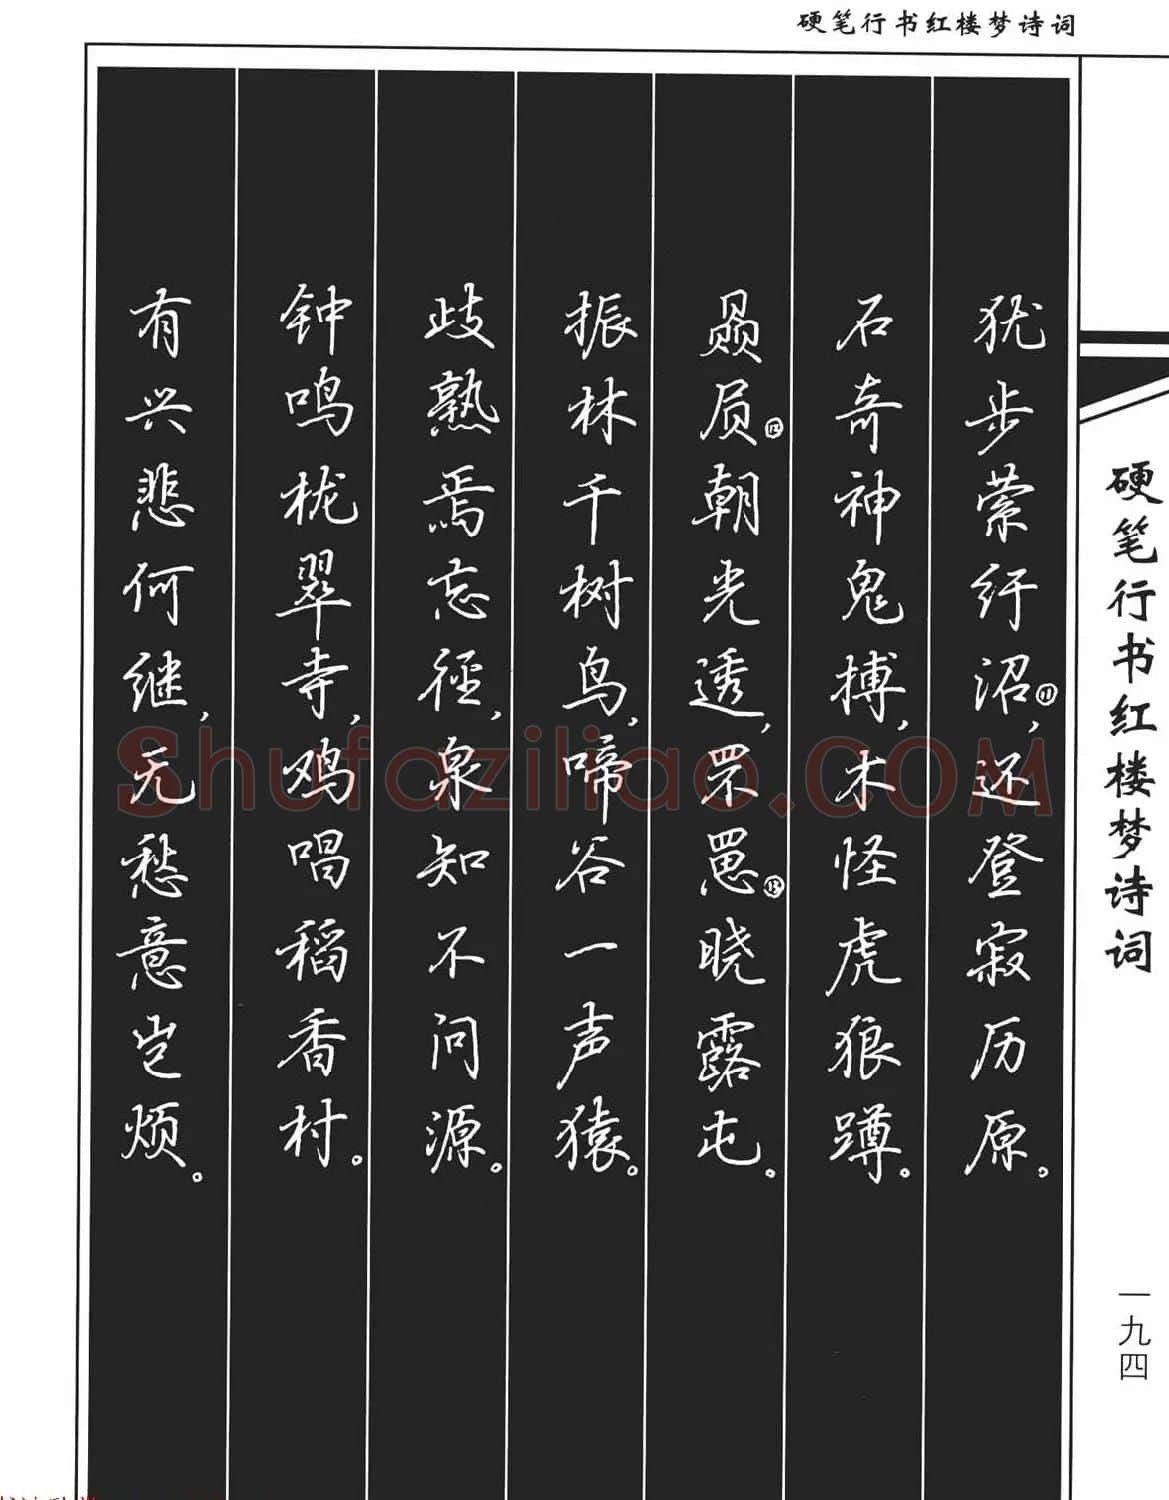 硬笔行书红楼梦诗词
犹步萦纡沼⑪,还登寂历原。
石奇神鬼搏,木怪虎狼蹲。
赑屃⑫朝光透,罘罳⑬晓露屯。
振林千树鸟,啼谷一声猿。
歧熟焉忘径,泉知不问源。
钟鸣栊翠寺,鸡唱稻香村。
有兴悲何继,无愁意岂烦。
硬笔行书红楼梦诗词
一九四
Shufaziliao.COM